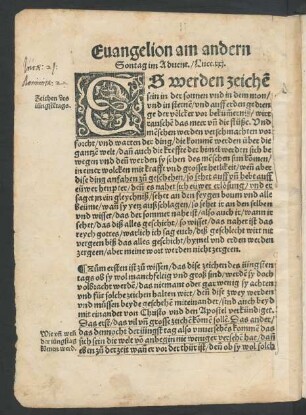 Euangelion am andern
Sontag im Aduent. / Luce. xxj.
Zeichen des
iüngsttags.
ES werden zeichē
sein in der sonnen vnd in dem mon /
vnd in sternē / vnd auff erden gedrenge
der völcker vor bekümernis / wirt
rauschē das meer vñ die flüße. Vnd
die menschen werden verschmachten vor
forcht / vnd warten der ding / die kommē werden über die
gantzē welt / dañ auch die kreffte der himel werden sich be
wegen vnd deñ werden sy sehen des mēschen sun kōmen /
in einer wolcken mit krafft vnd grosser herlikeit / weñ aber
dise ding anfahen zů geschehen / so sehet auff vñ hebt auff
ewer heupter / deñ es nahet sich ewer erlösung / vnd er
saget jn ain gleychniß / sehet an den feygen boum vnd alle
beume / wañ sy yetz außschlagen / so sehet ir an den selben
vnd wisset / das der sommer nahe ist / also auch ir / wann ir
sehet / das diß alles geschicht / so wisset / das nahet ist das
reych gottes / warlich ich sag euch / diß geschlecht wirt nit
vergeen biß das alles geschicht / hymel vnd erden werden
zergeen / aber meine wort werden nicht vergeen.
Zum ersten ist zů wissen / das dise zeichen des iüngstē
tags ob sy wol manchfeltig vnd groß sind / werdē sy doch
volbracht werden / das niemant oder gar wenig sy achten
vnd für solche zeichen halten wirt / deñ dise zwey werden
vnd müssen beyde geschehē mit einander / sind auch beyd
mit einander von Christo vnd den Apostel verkündiget.
Das erst / das vil vñ grosse zeichē kōmē sollē. Das ander /
das dennocht der iüngst tag also vnuersehēs kommē das
sich sein die welt vō anbegin nie weniger versehē hat / dañ
eben zů der zeit wañ er vor der thür ist / deñ ob sy wol solch
Wie eß weñ
der iüngstag
kumen werd.